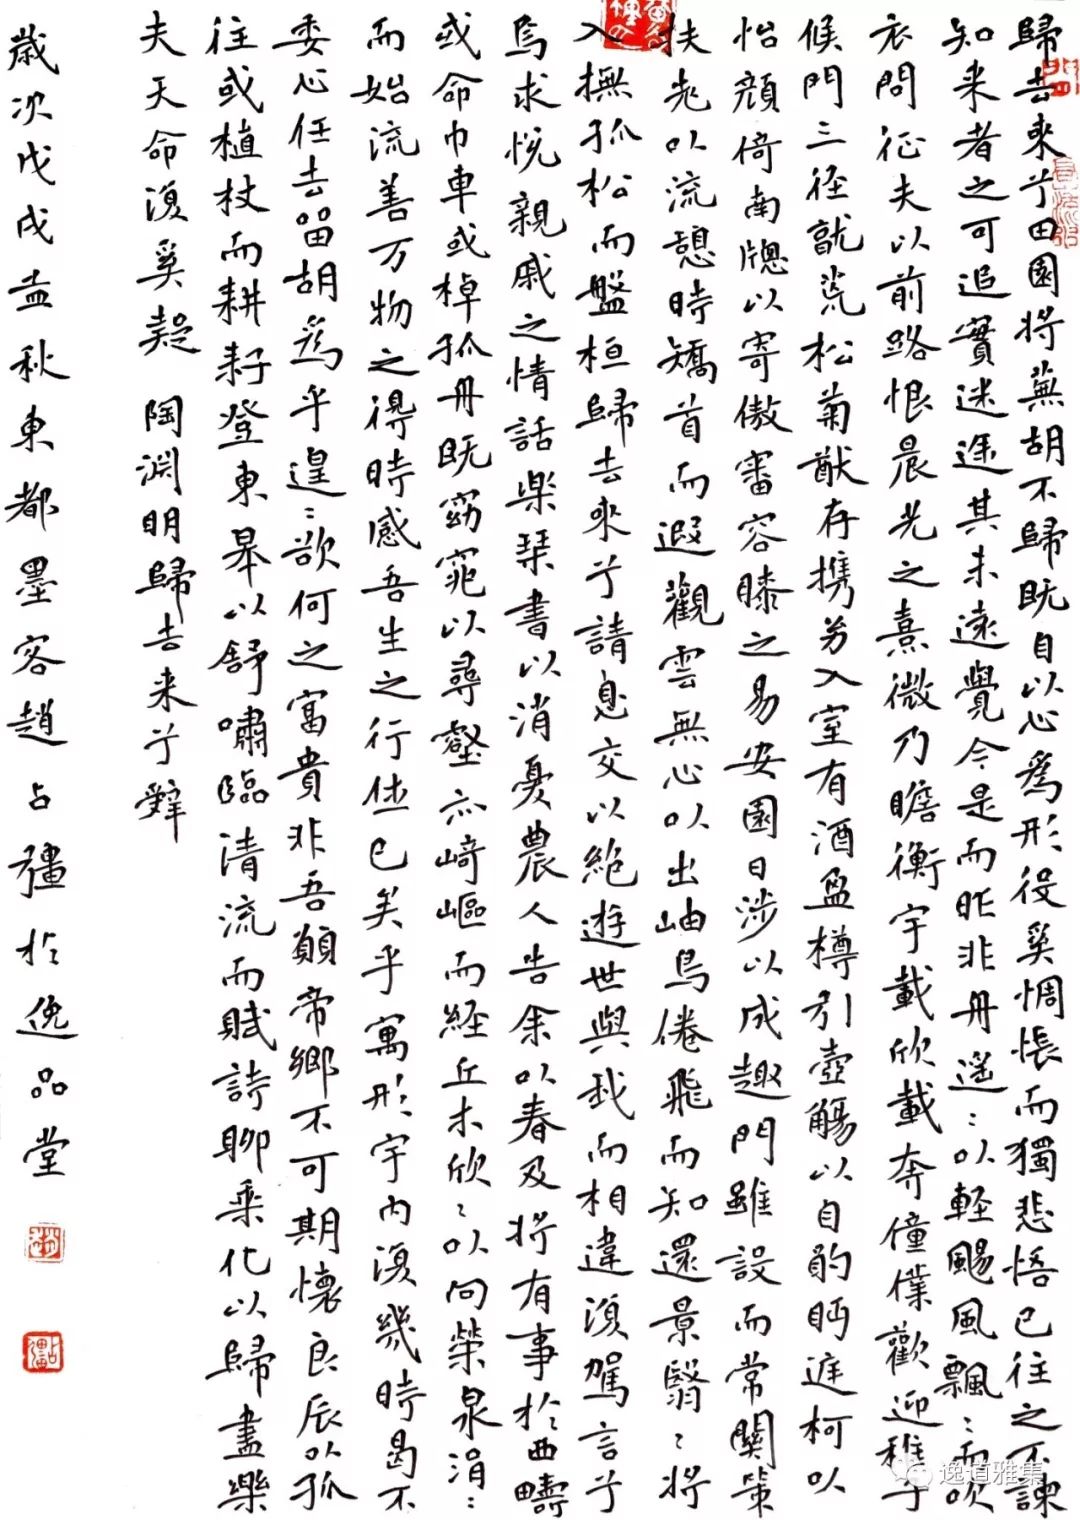 歸去來兮田園將蕪胡不歸既自以心為形役奚惆悵而獨悲悟已往之不諫
知来者之可追實迷途其未遠覺今是而昨非舟遥:以輕颺風飄:而吹
衣問征夫以前路恨晨光之熹微乃瞻衡宇載欣載奔僮僕歡迎稚子
候門三径就荒松菊猷存携幼入室有酒盈樽引壺觴以自酌眄庭柯以
怡顏倚南牕以寄傲審容膝之易安園日涉以成趣門雖設而常關策
扶老以流憩時矯首而遐觀雲無心以出岫鳥倦飛而知還景翳:將
入撫孤松而盤桓歸去來兮請息交以絕遊世與我而相違復駕言兮
焉求悅親戚之情話樂琴書以消憂農人告余以春及將有事於西疇
或命巾車或棹孤舟既窈窕以尋壑亦崎嶇而經丘木欣:以向榮泉涓:
而始流善万物之得時感吾生之行休已矣乎寓形宇內復幾時曷不
委心任去留胡為乎遑:欲何之富貴非吾願帝鄉不可期懷良辰以孤
往或植杖而耕耔登東皋以舒嘯臨清流而賦詩聊乘化以歸盡樂
夫天命復奚疑 陶淵明歸去来兮辭
歲次戊戌孟秋東都墨客趙占疆於逸品堂
逸道雅集